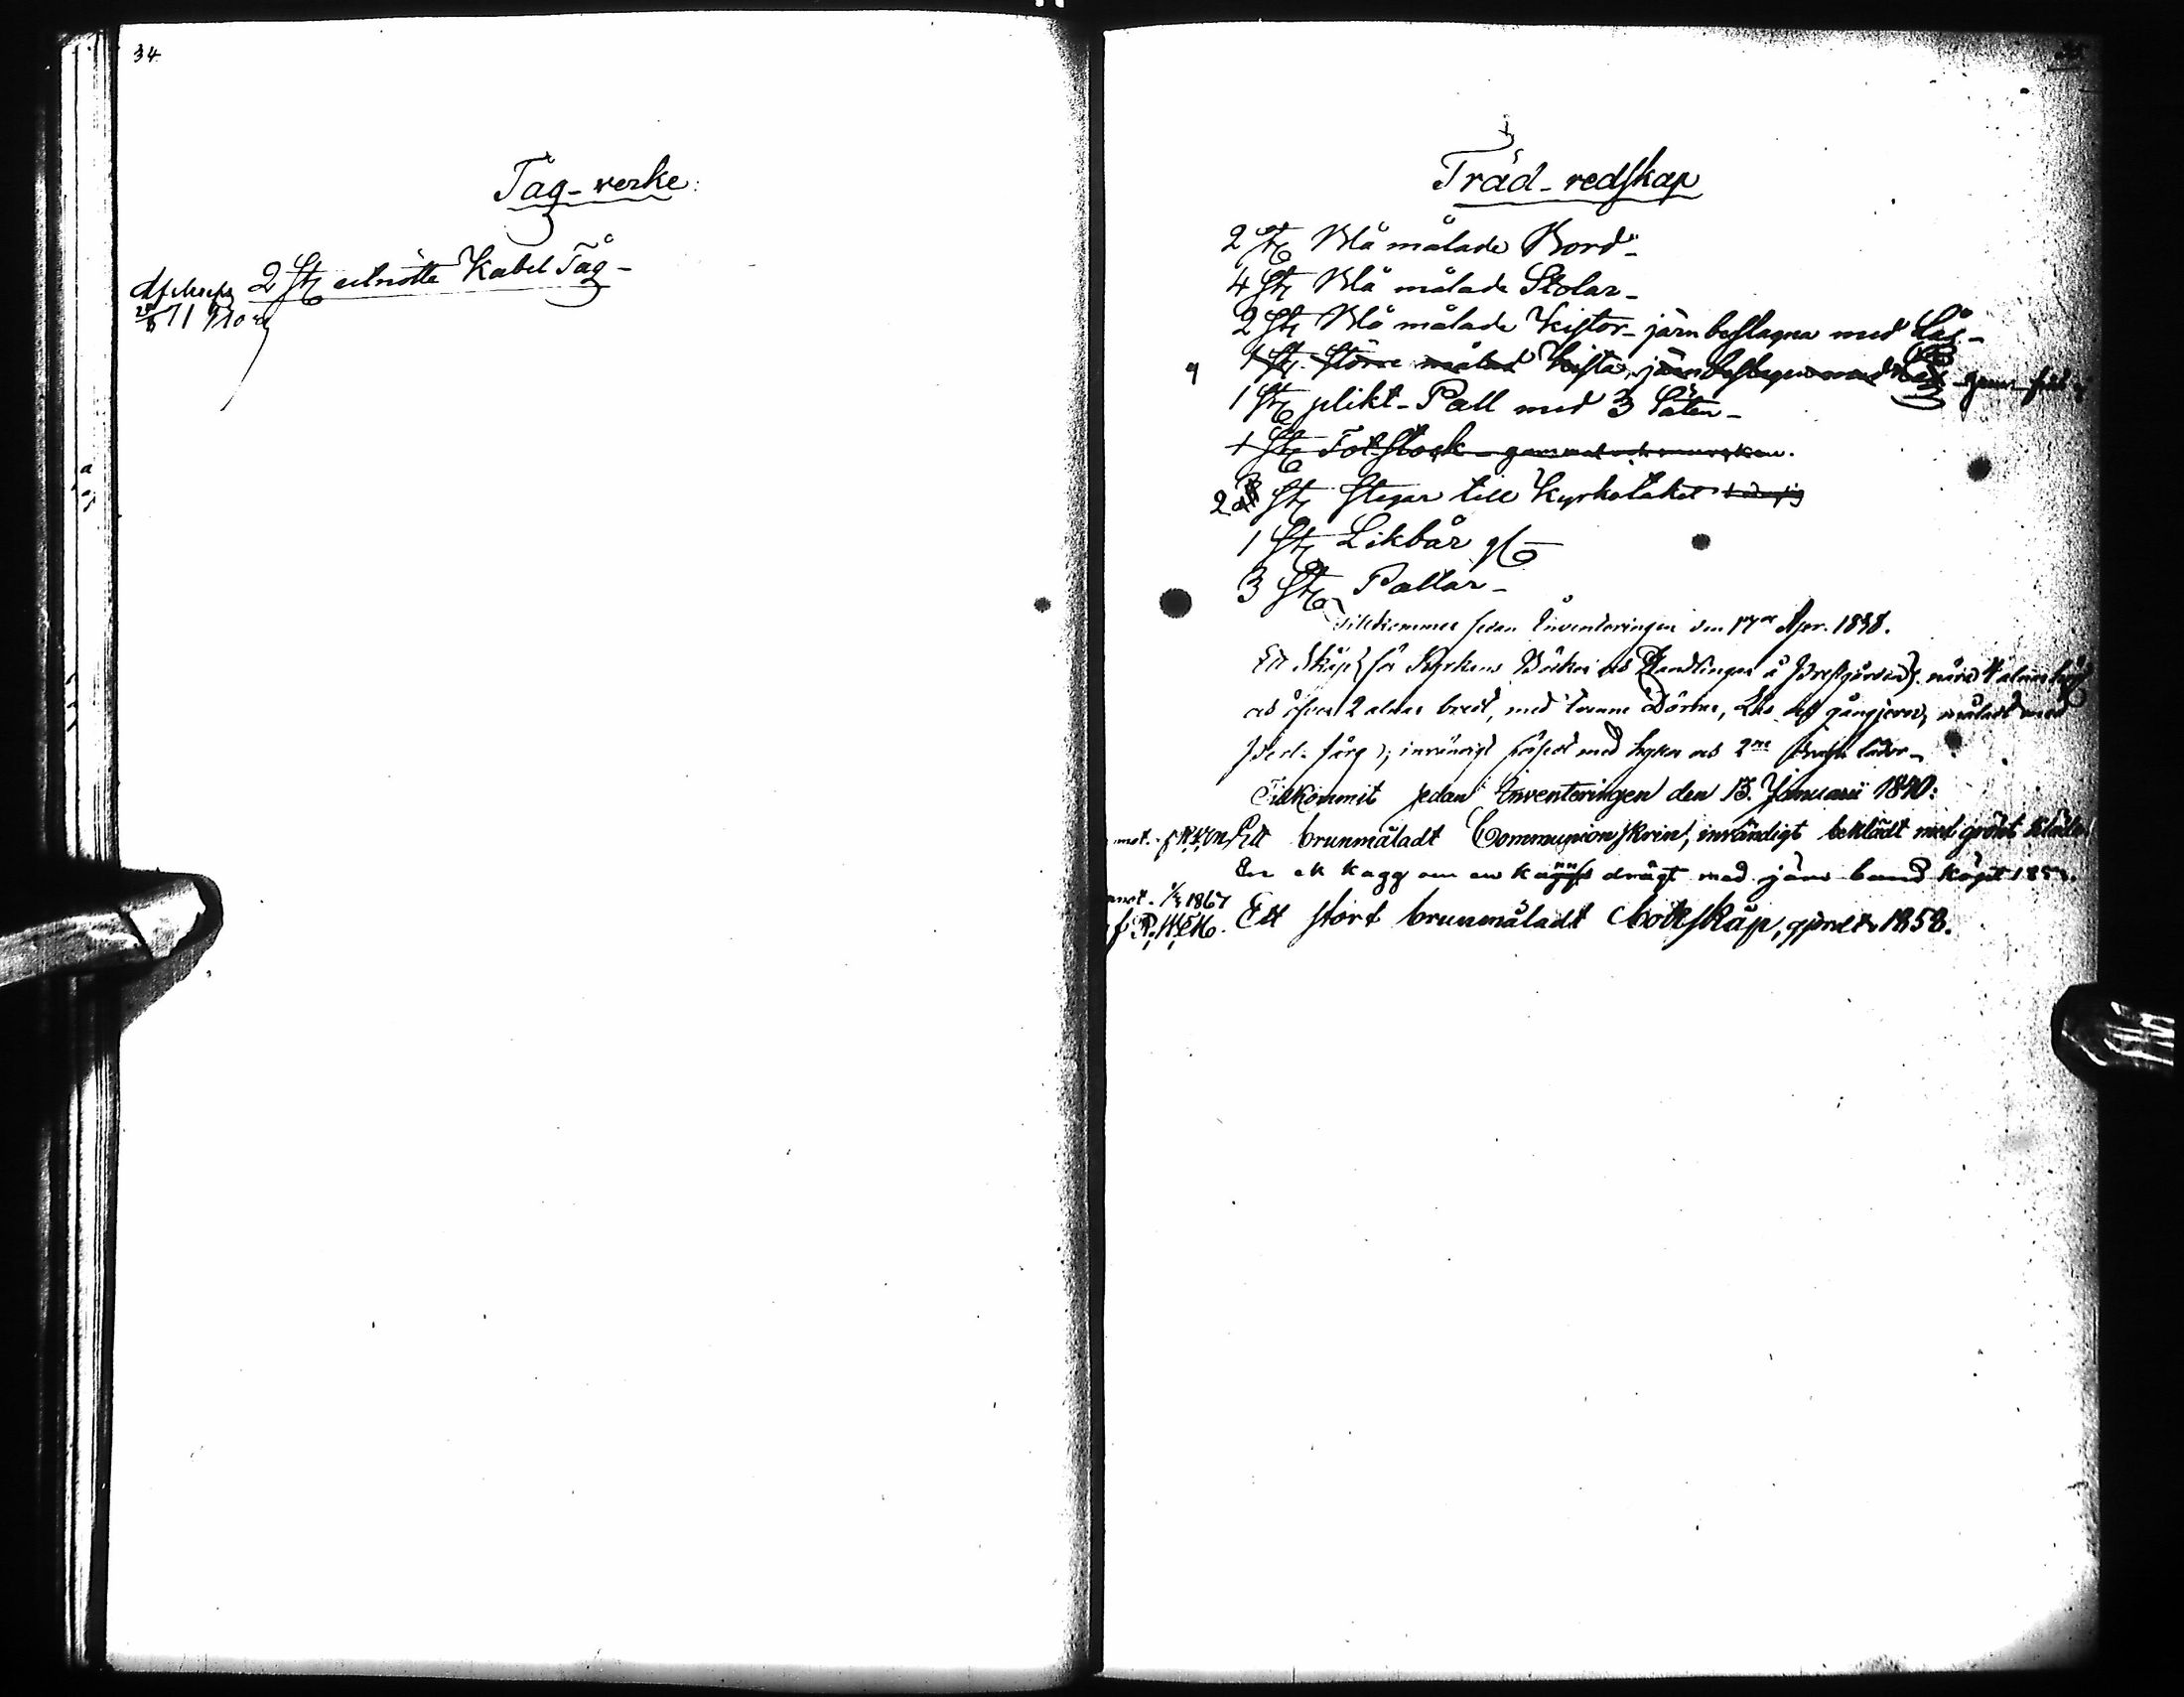 34
Tåg-verke:
2 St utnötta Kabel Tåg-
35
Träd-redskap
2 St Blå målade Bord-
4 St Blå målade Stolar-
2 St Blå målade Kistor-järnbeslagna med Lås-
1 St större målad Kista, järnbeslagen med Lås
1 St plikt-Pall med 3 Säten-
1 St Fotstock - gammal och
2 St Stegar till Kyrkotaket
1 St Likbår
3 St Pallar-
Tillkommer sedan Inventeringen den 17de Apr. 1838.
Ett Skåp (för Kyrkans Böcker och Handlingar å Prestgården)
och öfver 2 alnar bredt, med Dörrar, Lås och gångjern, måladt med
Perl-färg, invändigt med och 2ne lådor-
Tillkommit sedan Inventeringen den 13. Januarii 1840:
Ett brunmåladt Communionskrin, invändigt beklädt med grönt kläde.
En ek kagg om en kannas drägt med järn band köpt 185
1867
Ett stort brunmåladt Bokskåp, gjordt 1858.